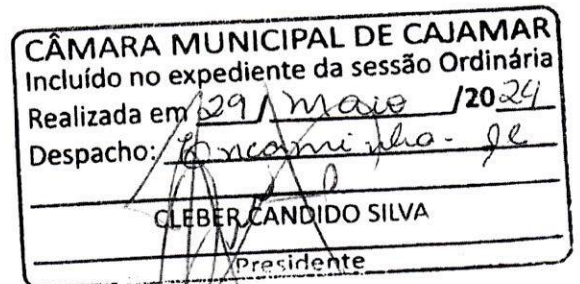 CÂMARA MUNICIPAL DE CAJAMAR
Incluído no expediente da sessão Ordinária
Realizada em 29 / maio /2024
Despacho: Encaminha-se
CLEBER CANDIDO SILVA
Presidente